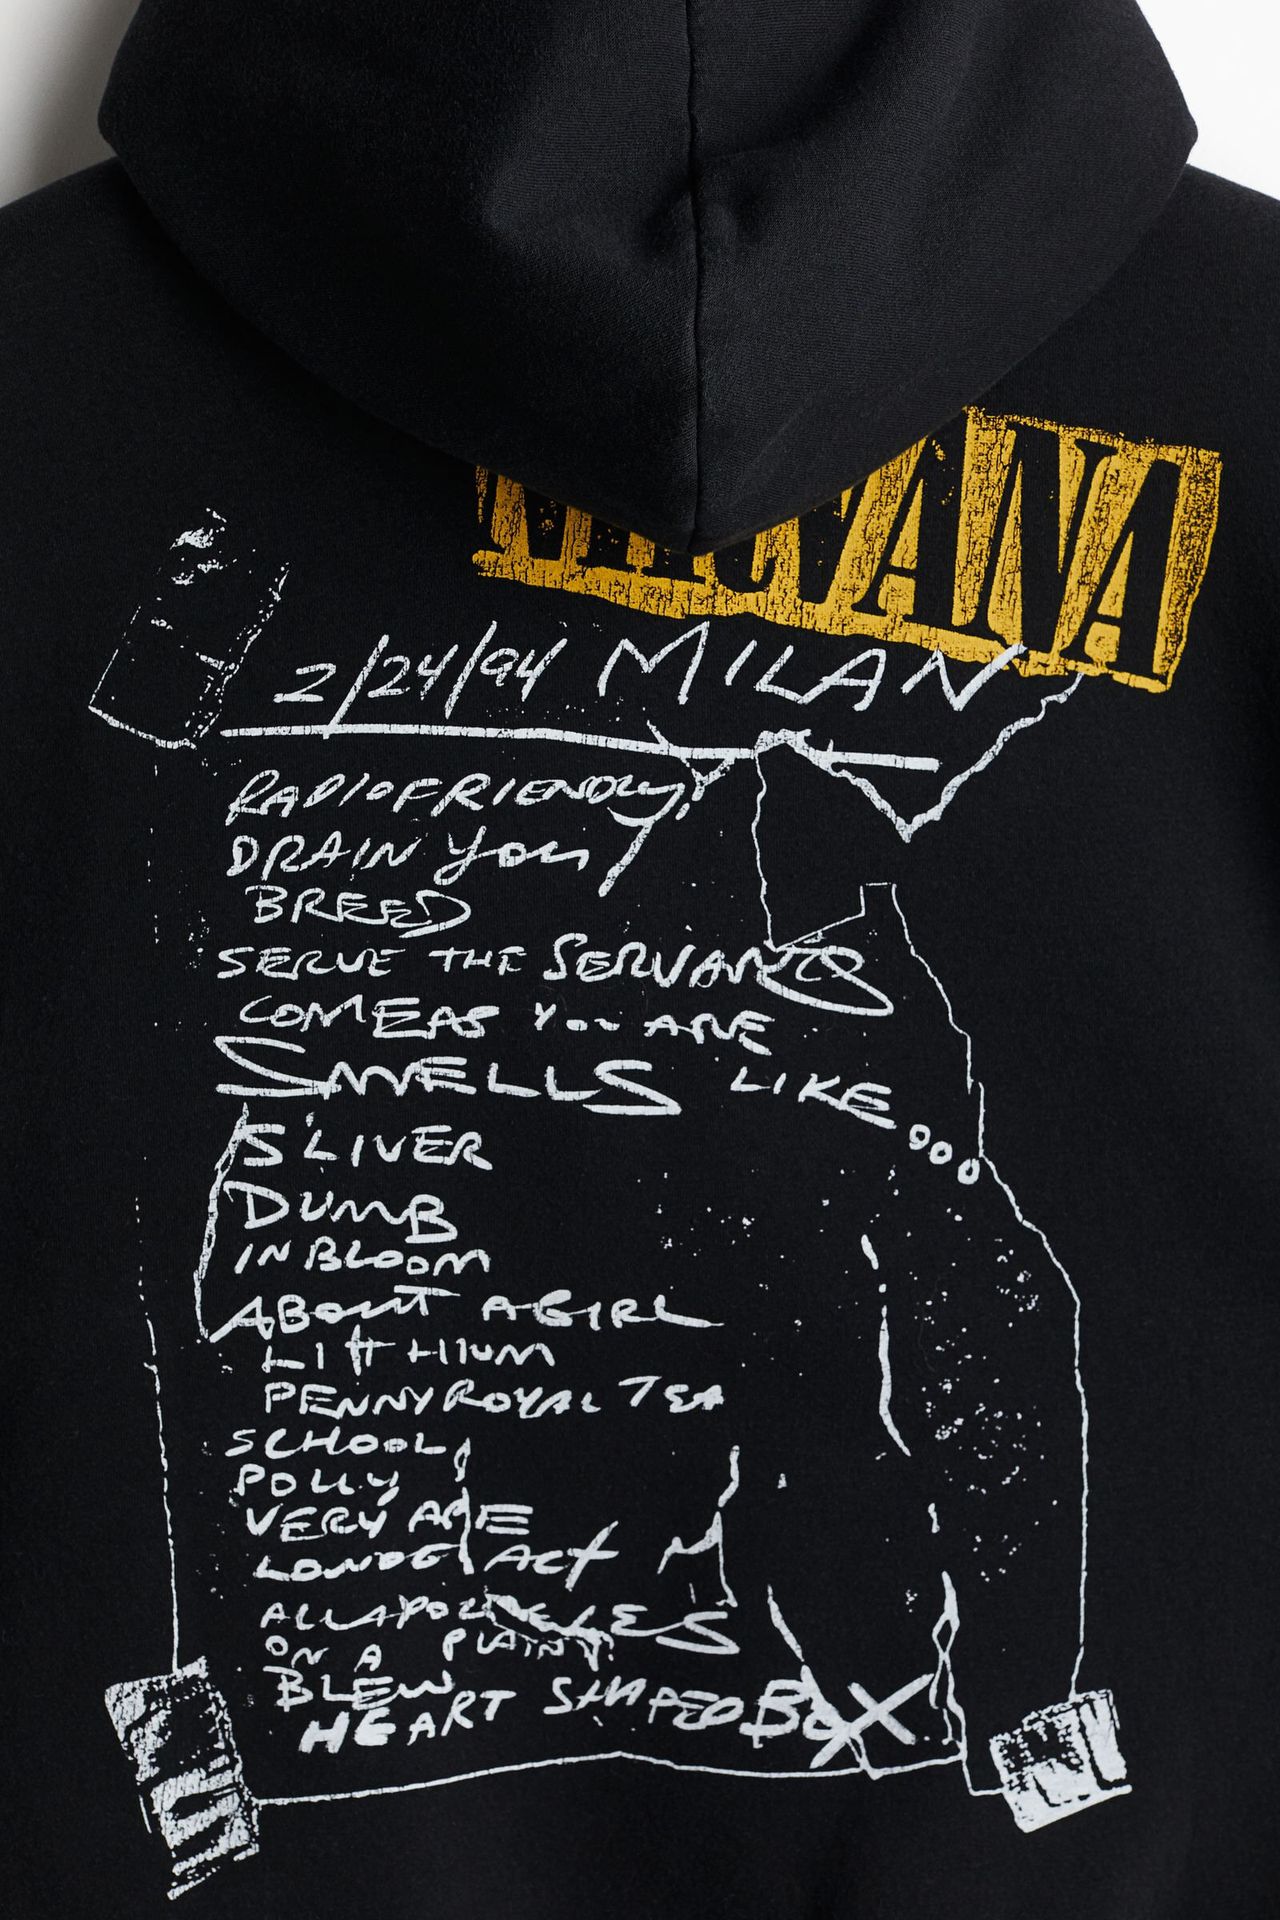 NIRVANA
2/24/94 MILAN
RADIOFRIENDLY
DRAIN YOU
BREED
SERVE THE SERVANTS
COMEAS YOU ARE
SMELLS LIKE...
SLIVER
DUMB
IN BLOOM
ABOUT A GIRL
LITHIUM
PENNYROYAL TEA
SCHOOL
POLLY
VERY APE
LOUNGE ACT
ALL APOLOGIES
ON A PLAIN
BLEW
HEART SHAPED BOX